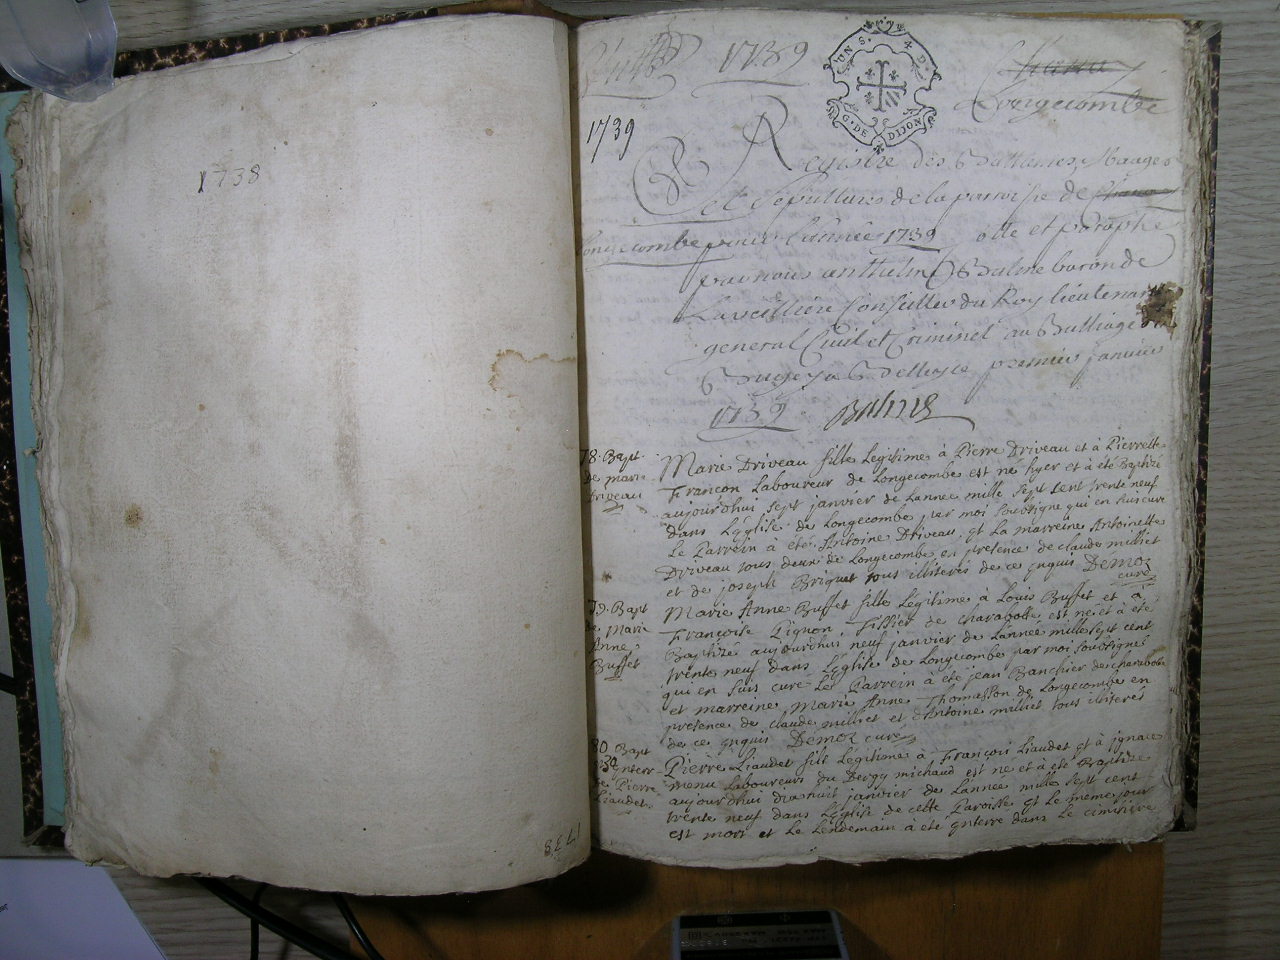 1738
1738
1739
UNS. X D.
G. DE DIJON
Longecombe
1739
Registre des Battemes, Mauges
et sepultures de la parroisse de
longecombe pour l'année 1739 otte et paraphe
par nous anthelme Balme baron de
Conseiller du Roy lieutenant
general Civil et Criminel au Balliage
Bugey a Belleyse premier janvier
1739 Balme
78. Bapt
de marie
Driveau
Marie Driveau fille Legitime à Pierre Driveau et à Pierrette
Françon Laboureur de Longecombe est né hyer et à été Baptizé
aujourdhui sept janvier de Lannee mille sept cent trente neuf
dans Léglise de Longecombe par moi soubsigne qui en suis curé
Le Parrein à été Antoine Driveau et La marreine Antoinette
Driveau tous deux de Longecombe en presence de claude milliet
et de joseph Briquet tous illiterés de ce enquis Demoz
curé
79. Bapt
de Marie
Anne
Buffet
Marie Anne Buffet fille Légitime à Louis Buffet et à
Françoise Pignon Tissier de charabotte est né et à été
Baptizé aujourdhui neuf janvier de Lannée mille sept cent
trente neuf dans Léglise de Longecombe par moi soubsigné
qui en suis curé Le Parrein à été jean Banchier de charabotte
et marreine Marie Anne Thomasson de Longecombe en
presence de claude milliet et Antoine milliet tous illiterés
de ce enquis Demoz curé
80 Bapt
enterr
de Pierre
Liaudet
Pierre Liaudet fils Légitime à François Liaudet et à ignace
menu Laboureurs du Bergy michaud est né et à été Baptize
aujourdhui dixhuit janvier de Lannée mille sept cent
trente neuf dans Léglise de cette Paroisse et Le meme jour
est mort et Le Lendemain à été enterré dans Le cimitiere